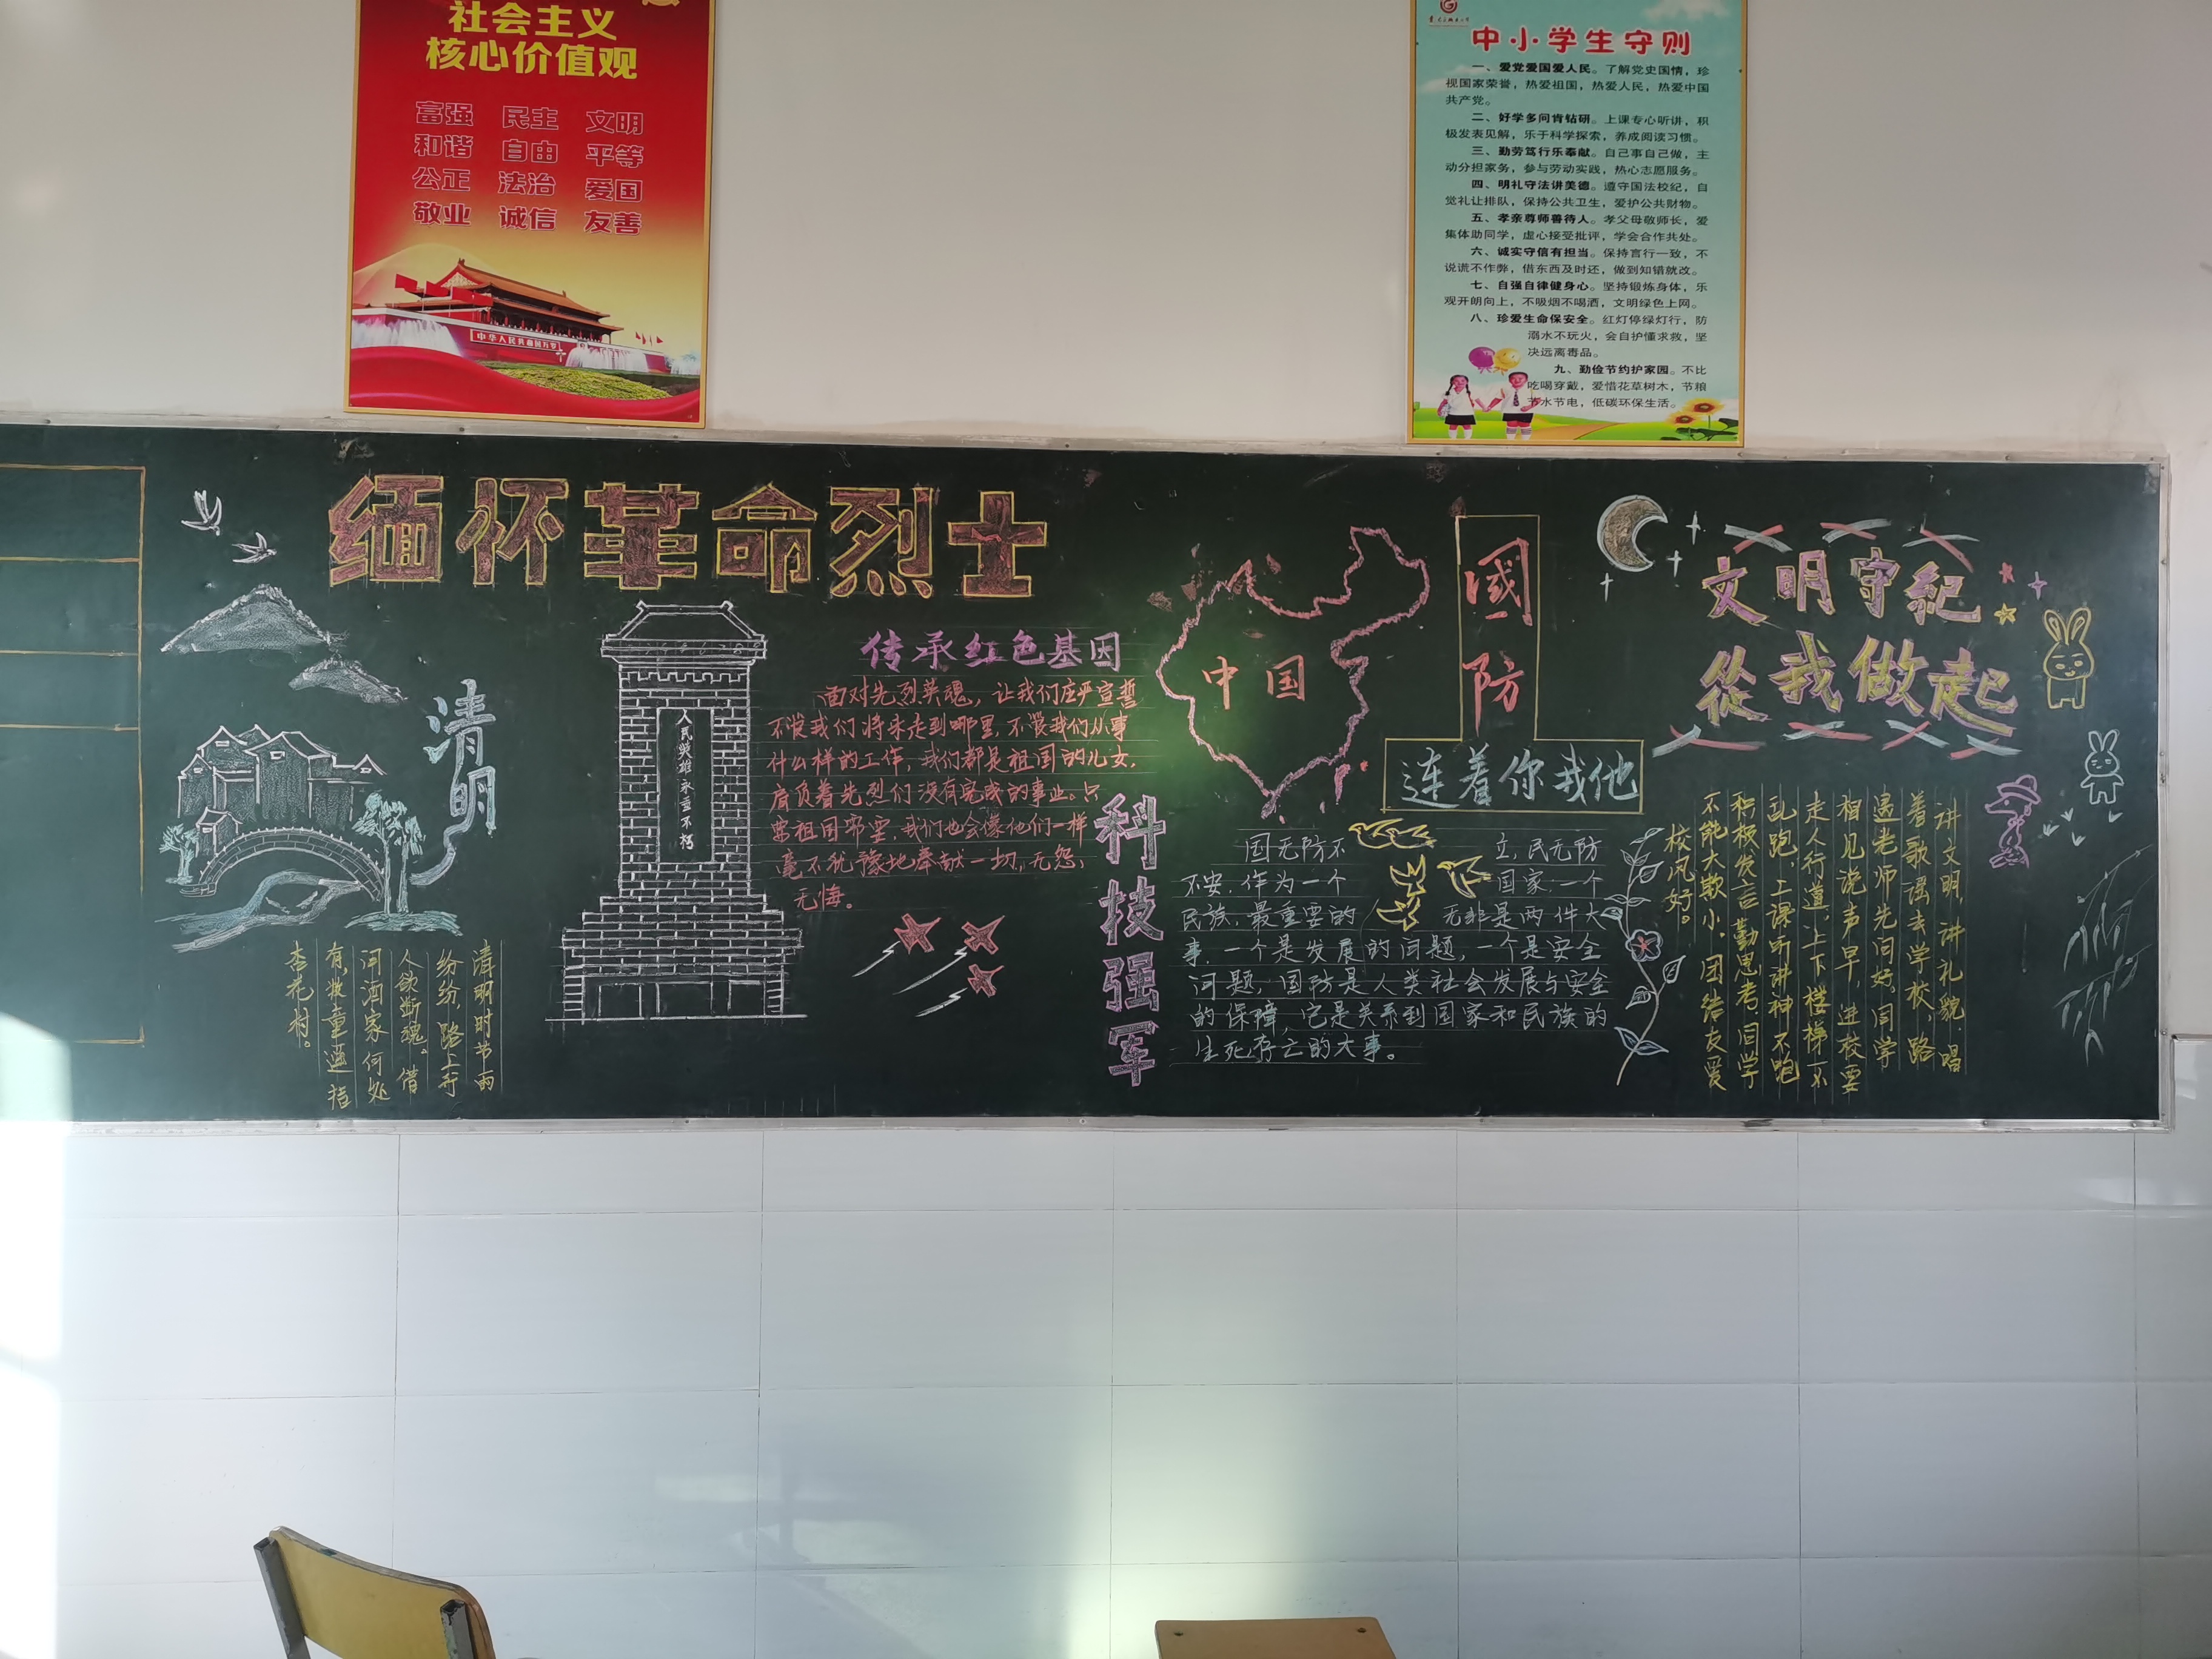 社会主义
核心价值观
富强 民主 文明
和谐 自由 平等
公正 法治 爱国
敬业 诚信 友善
中华人民共和国万岁
中小学生守则
一、爱党爱国爱人民。了解党史国情，珍
视国家荣誉，热爱祖国，热爱人民，热爱中国
共产党。
二、好学多问肯钻研。上课专心听讲，积
极发表见解，乐于科学探索，养成阅读习惯。
三、勤劳笃行乐奉献。自己事自己做，主
动分担家务，参与劳动实践，热心志愿服务。
四、明礼守法讲美德。遵守国法校纪，自
觉礼让排队，保持公共卫生，爱护公共财物。
五、孝亲尊师善待人。孝父母敬师长，爱
集体助同学，虚心接受批评，学会合作共处。
六、诚实守信有担当。保持言行一致，不
说谎不作弊，借东西及时还，做到知错就改。
七、自强自律健身心。坚持锻炼身体，乐
观开朗向上，不吸烟不喝酒，文明绿色上网。
八、珍爱生命保安全。红灯停绿灯行，防
溺水不玩火，会自护懂求救，坚
决远离毒品。
九、勤俭节约护家园。不比
吃喝穿戴，爱惜花草树木，节粮
节水节电，低碳环保生活。
缅怀革命烈士
清明
清明时节雨
纷纷，路上行
人欲断魂。借
问酒家何处
有，牧童遥指
杏花村。
人民英雄永垂不朽
传承红色基因
面对先烈英魂，让我们庄严宣誓
不管我们将来走到哪里，不管我们从事
什么样的工作，我们都是祖国的儿女，
肩负着先烈们没有完成的事业。只
要祖国需要，我们也会像他们一样
毫不犹豫地奉献一切，无怨，
无悔。
科技强军
中国
國防
连着你我他
国无防不 立，民无防
不安，作为一个 国家，一个
民族，最重要的 无非是两件大
事，一个是发展的问题，一个是安全
问题，国防是人类社会发展与安全
的保障，它是关系到国家和民族的
生死存亡的大事。
文明守紀
從我做起
讲文明，讲礼貌，唱
着歌谣去学校，路
遇老师先问好，同学
相见说声早，进校要
走人行道，上下楼梯不
乱跑，上课听讲神不跑
积极发言勤思考，同学
不能大欺小，团结友爱
校风好。